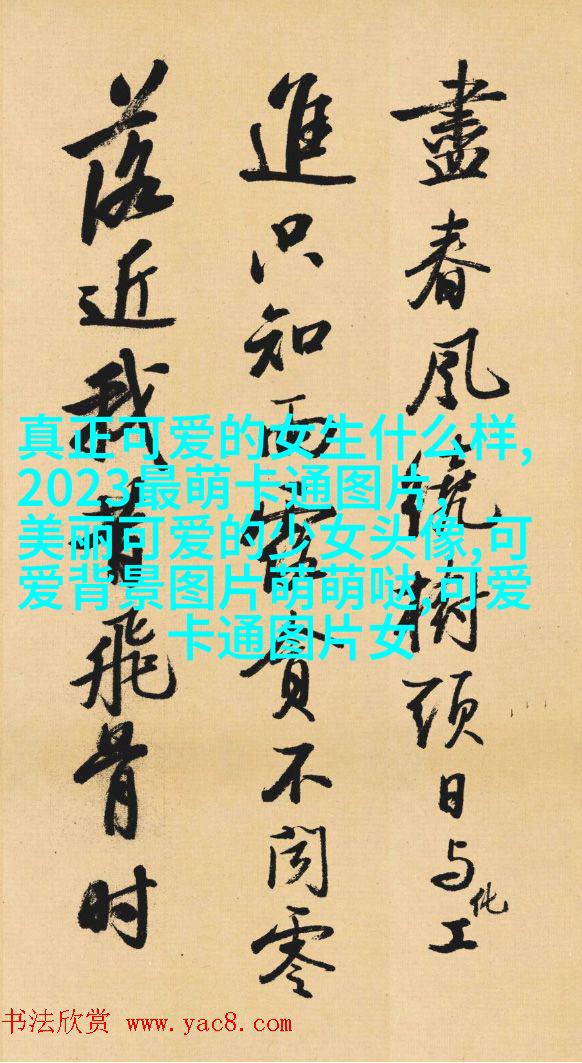 盡春風繞樹頭日与化工
進只知雨露貪不聞零
落近我昔飛骨时
真正可爱的女生什么样,
2023最萌卡通图片,
美丽可爱的少女头像,可
爱背景图片萌萌哒,可爱
卡通图片女
书法欣赏 www.yac8.com